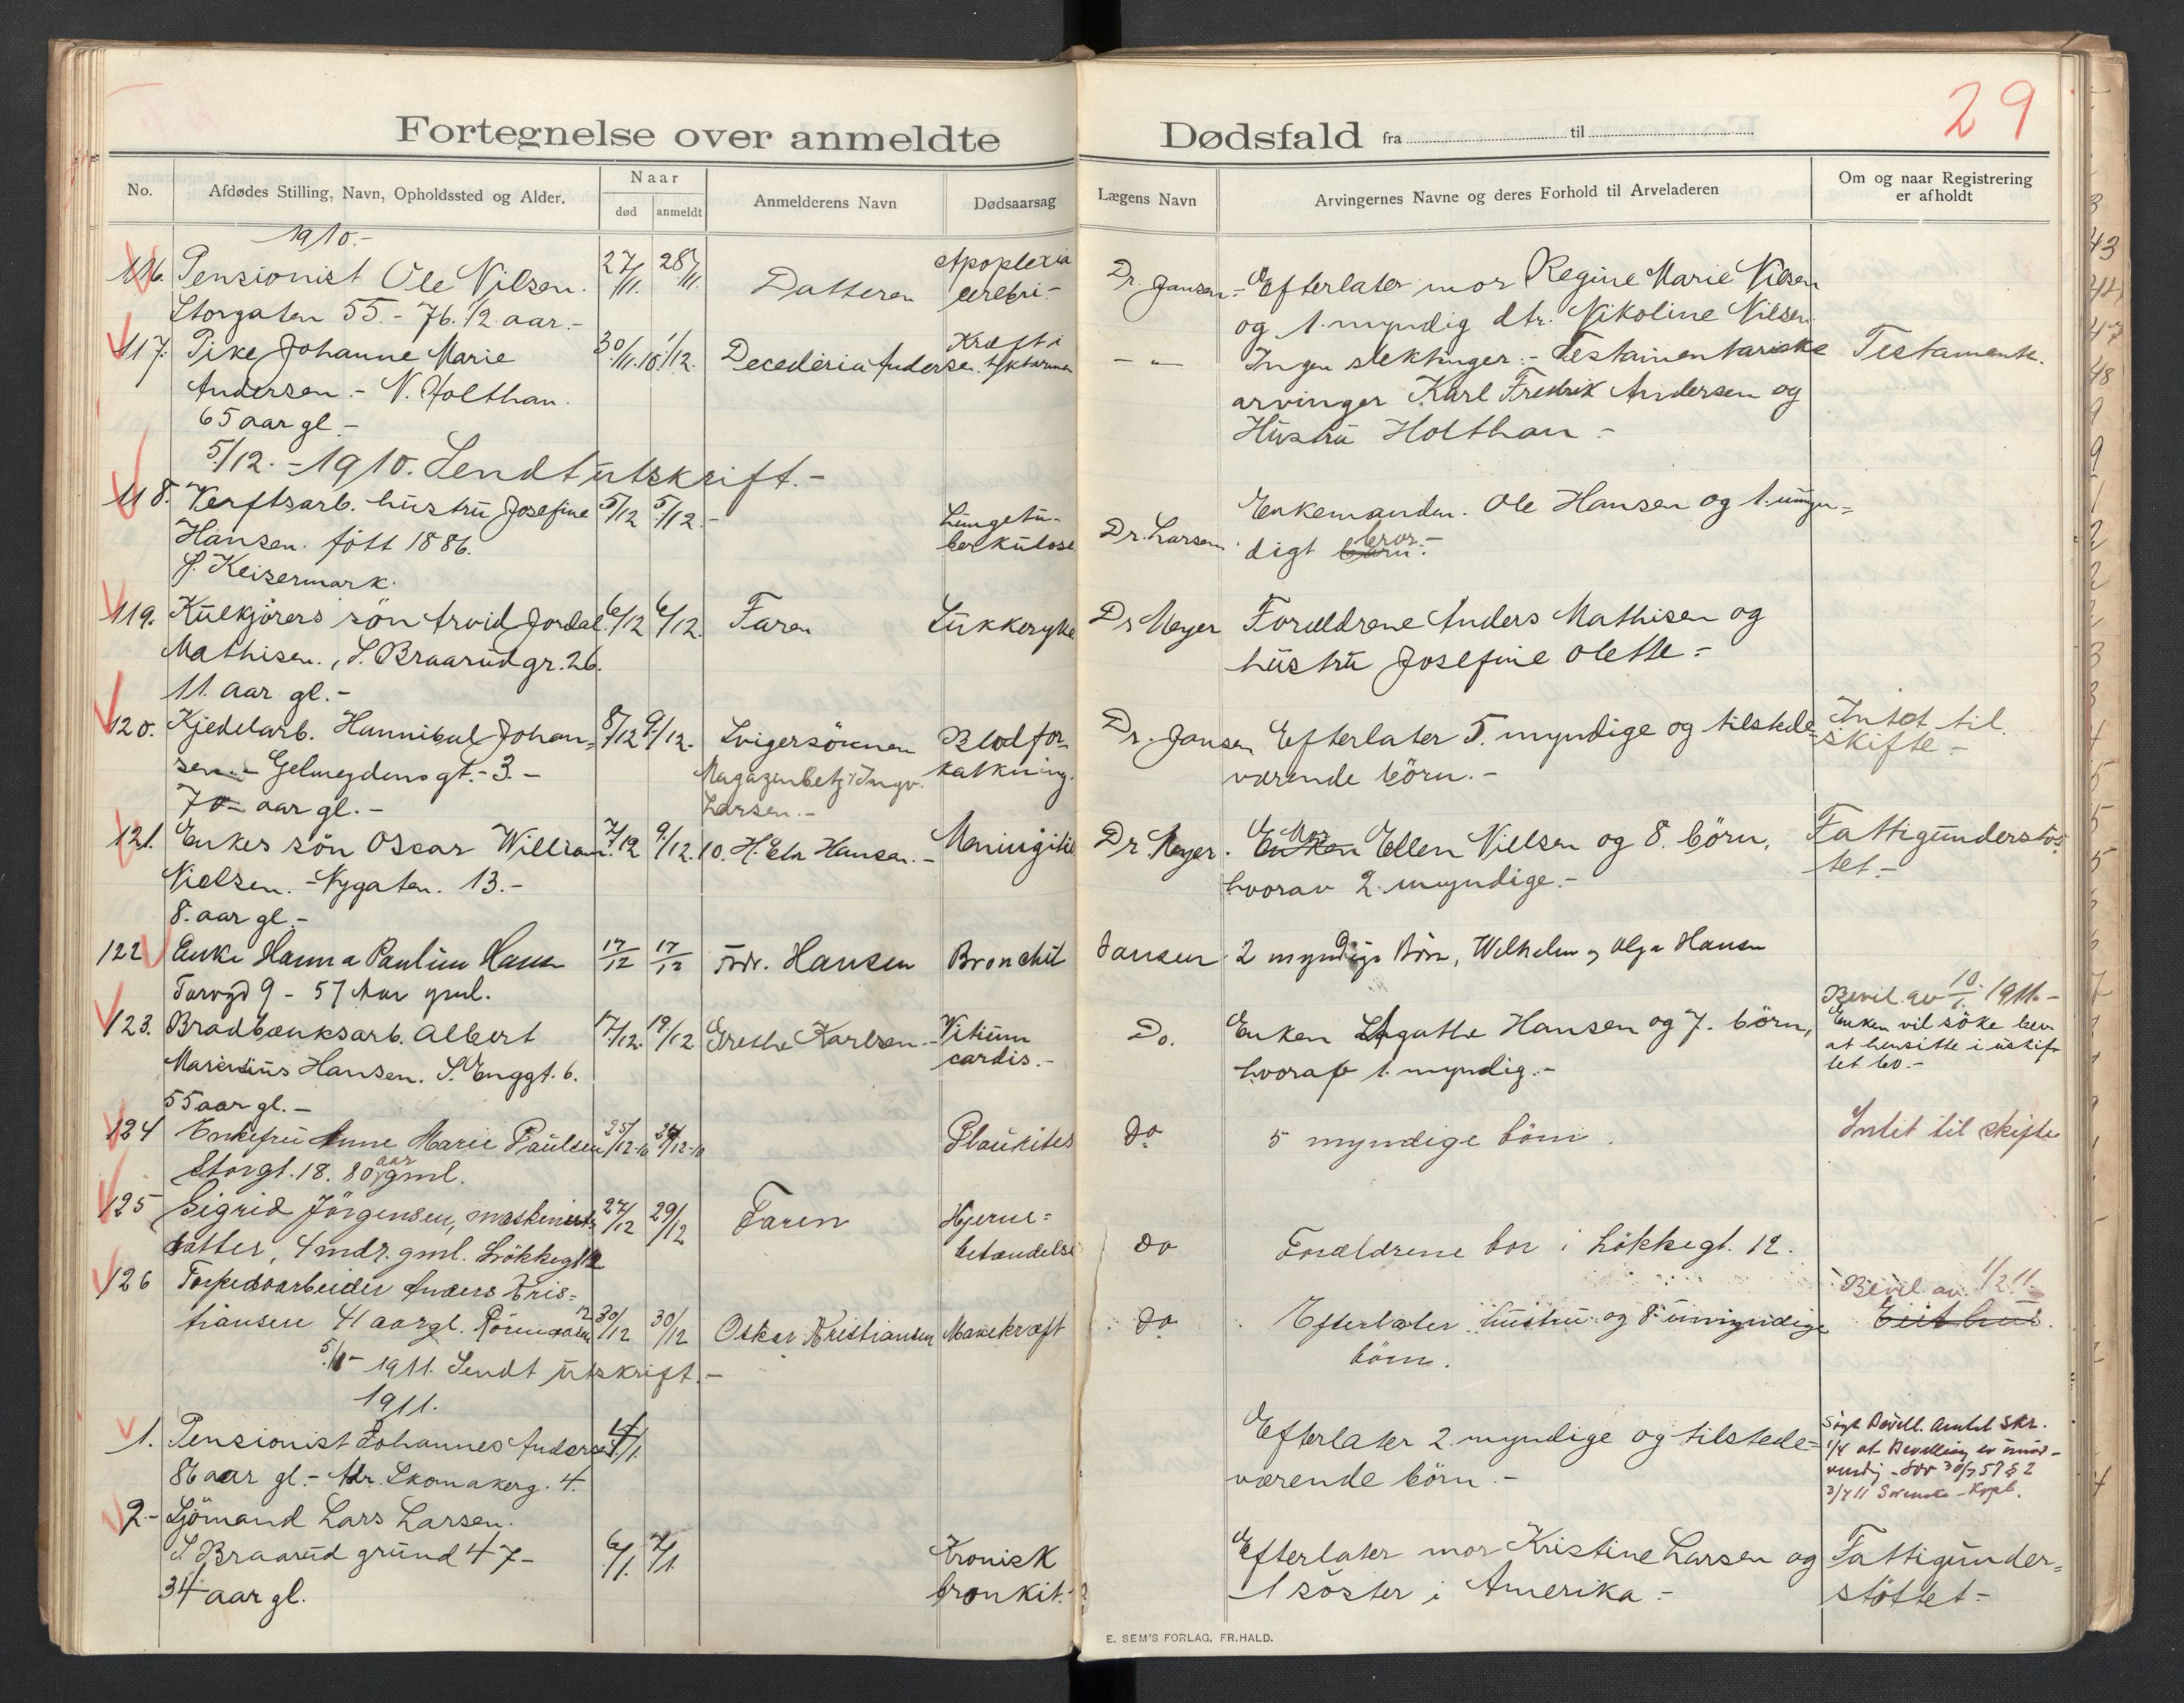 29
Fortegnelse over anmeldte Dødsfald fra til
No.
Afdødes Stilling, Navn, Opholdssted og Alder.
Naar
død anmeldt
Anmelderens Navn
Dødsaarsag
Lægens Navn
Arvingernes Navne og deres Forhold til Arveladeren
Om og naar Registrering
er afholdt
1910.-
116. Pensionist Ole Nilsen. 27/11. 28/11. Datteren Apoplexia
cerebri.- Dr. Jansen- Efterlater mor Regine Marie Nilsen
Storgaten 55.- 76 1/2 aar.-
og 1. myndig dtr. Nikoline Nilsen
117. Pike Johanne Marie 30/11.10. 1/12. Andersen Kræft i
tyktarmen - " - Ingen slektninger.- Testamentariske Testamente.
Andersen.- N. Holthan.
arvinger Karl Fredrik Andersen og
65 aar gl.-
Hustru Holthan.-
5/12.-1910. Sendt utskrift.-
118. Verftsarb. hustru Josefine 5/12 5/12.- Lungetu-
berkulose Dr. Larsen. Enkemanden. Ole Hansen og 1. umyn=
Hansen. fött 1886.
digt barn bror.-
S. Keisermark.
119. Kulkjörers sön Arvid Jordal 6/12 6/12. Faren Sukkersyke Dr Meyer Forældrene Anders Mathisen og
Mathisen., S. Braarudgr. 26.
hustru Josefine Olette-
11. aar gl.-
120. Kjedelarb. Hannibal Johan= 8/12 9/12. Svigersönnen Blodfor-
kalkning. Dr. Jansen Efterlater 5. myndige og tilstede= Intet til
skifte-
sen.- Gelmeydens gt.- 3.- Magazinbetj. Ingv.
Larsen.-
værende börn.-
70- aar gl.-
121. Enkes sön Oscar William 7/12 9/12.10. Hansen.- Meningitis Dr. Meyer. Enken Mor Ellen Nielsen og 8. börn, Fattigunderstöt
tet.-
Nielsen.- Nygaten. 13.-
hvorav 2. myndige.-
8. aar gl.-
122 Enke Hanna Pauline Hansen 17/12 17/12 Fdr. Hansen Bronchit Jansen 2 myndige Börn, Wilhelm og Olga Hansen
Torvgd 9 - 57 Aar gml.
123. Brødbænksarb. Albert 17/12. 19/12 Grethe Karlsen.- Vitium
cardis.- Do. Enken Agathe Hansen og 7. börn, Bevil. av 10/1. 1911.-
Enken vil söke bev
at hensitte i uskif-
tet bo.-
Marenius Hansen. S. Enggt. 6.
hvoraf 1. myndig.-
55 aar gl.-
124 Enkefru Anne Marie Paulsen 25/12-10 /12-10 do 5 myndige börn. Intet til skifte
Storgt. 18. 80 aar gml.
125 Sigrid Jörgensen, maskinist- 27/12 29/12 Faren Hjerne=
betændelse do Forældrene bor i Lökkegt. 12.
datter, 4 mdr. gml. Lökkegt 12
126 Torpedoarbeider Anders Kris=
tiansen 41 aar gl. 12 30/12 30/12 Oskar Kristiansen Mavekræft do Efterlater hustru og 8 umyndige
börn. Bevil. av. 1/2 11
5/1- 1911. Sendt utskrift.-
1911.
1. Pensionist Johannes Andersen 4/1.
86 aar gl.- Adr. Skomakerg. 4.
Efterlater 2. myndige og tilstede=
værende börn.-
2.- Sjömand Lars Larsen.
S. Braarud grund 47- 6/1. 7/1. Kronisk
bronkit.-
34 aar gl.
Efterlater mor Kristine Larsen og
1 söster i Amerika.-
Fattigunder=
stöttet-
E. SEM'S FORLAG, FR.HALD.